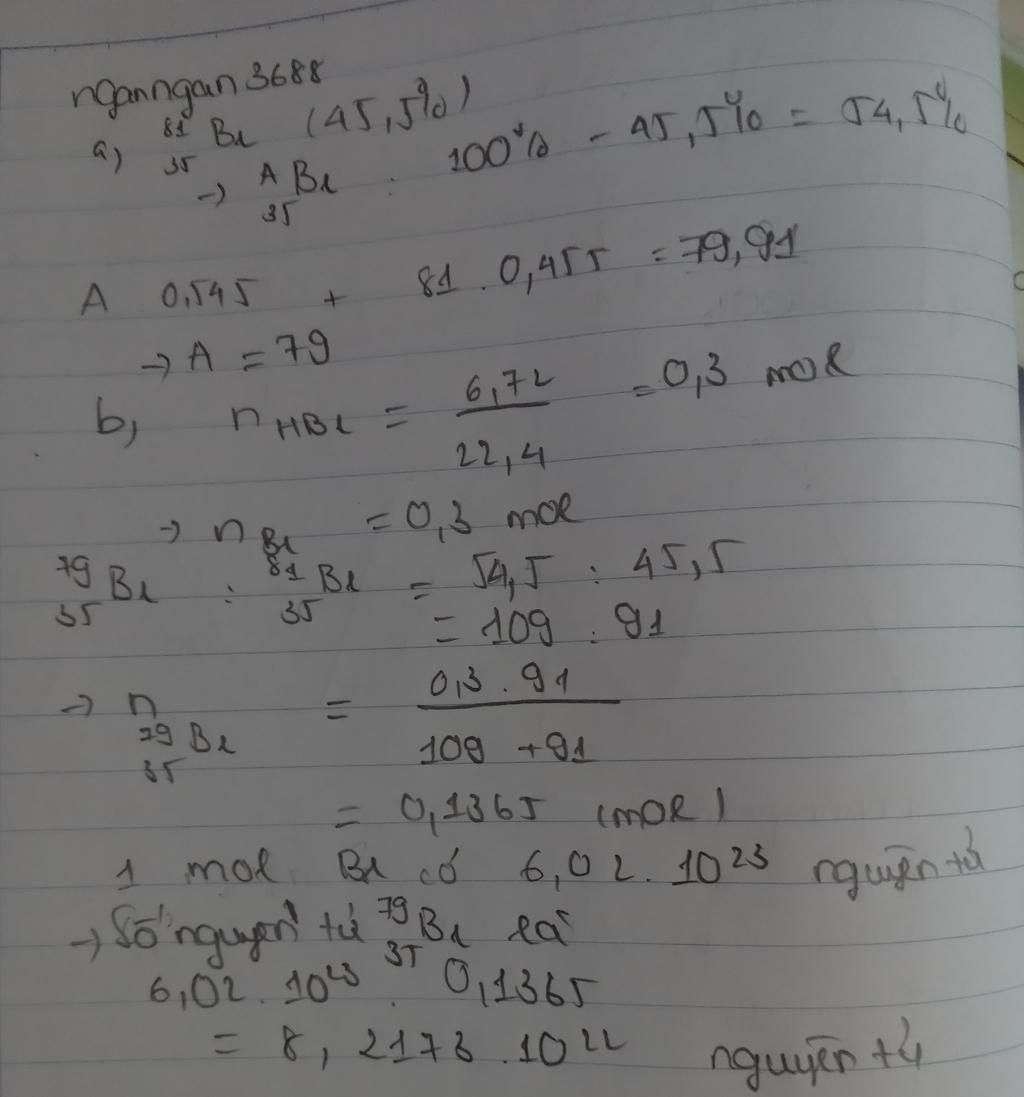 nganngan3688
a) ⁸¹₃₅Br (45,5%)
→ ᴬ₃₅Br : 100% - 45,5% = 54,5%
A 0,545 + 81 . 0,455 = 79,91
→ A = 79
b, n HBr = 6,72 / 22,4 = 0,3 mol
→ n Br = 0,3 mol
⁷⁹₃₅Br : ⁸¹₃₅Br = 54,5 : 45,5
= 109 : 91
→ n ⁷⁹₃₅Br = 0,3 . 91 / 109 + 91
= 0,1365 (mol)
1 mol Br có 6,02 . 10²³ nguyên tử
→ Số nguyên tử ⁷⁹₃₅Br là
6,02 . 10²³ . 0,1365
= 8, 2173 . 10²² nguyên tử